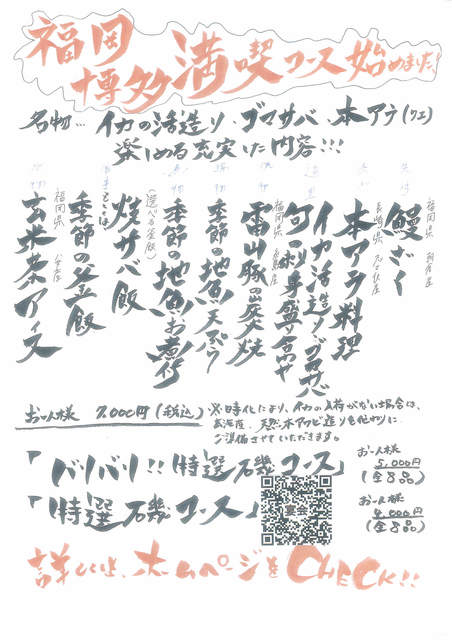 福岡
博多満喫コース始めました!
名物… イカの活造り、ゴマサバ、本アラ(クエ)
楽しめる充実した内容!!!
福岡県
鰻ざく
長崎県
本アラ料理
イカ活造り・ゴマサバ
旬の刺身盛り合わせ
福岡県
雷山豚の炭火焼
季節の地魚天ぷら
季節の地魚お煮付
(選べる釜飯)
焼サバ飯
季節の釜飯
福岡県
玄米茶アイス
お一人様 7,000円(税込)
※時化により、イカの入荷がない場合は、
天然・本アワビ造りを代わりに
ご準備させていただきます。
「バリバリ!!特選磯コース」
お一人様
5,000円
(全8品)
「特選磯コース」
宴会
お一人様
4,000円
(全8品)
詳しくは、ホームページをCHECK!!